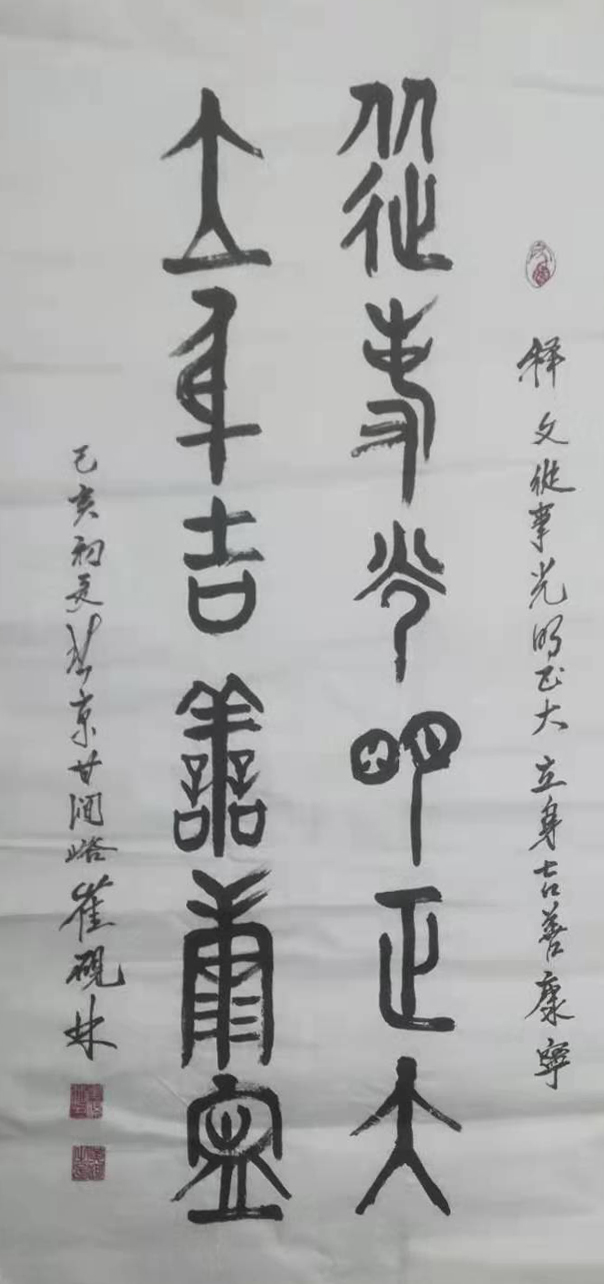 释文從事光明正大 立身吉善康寧
從事光明正大
立身吉善康寧
己亥初夏於京甘涧峪崔硯林